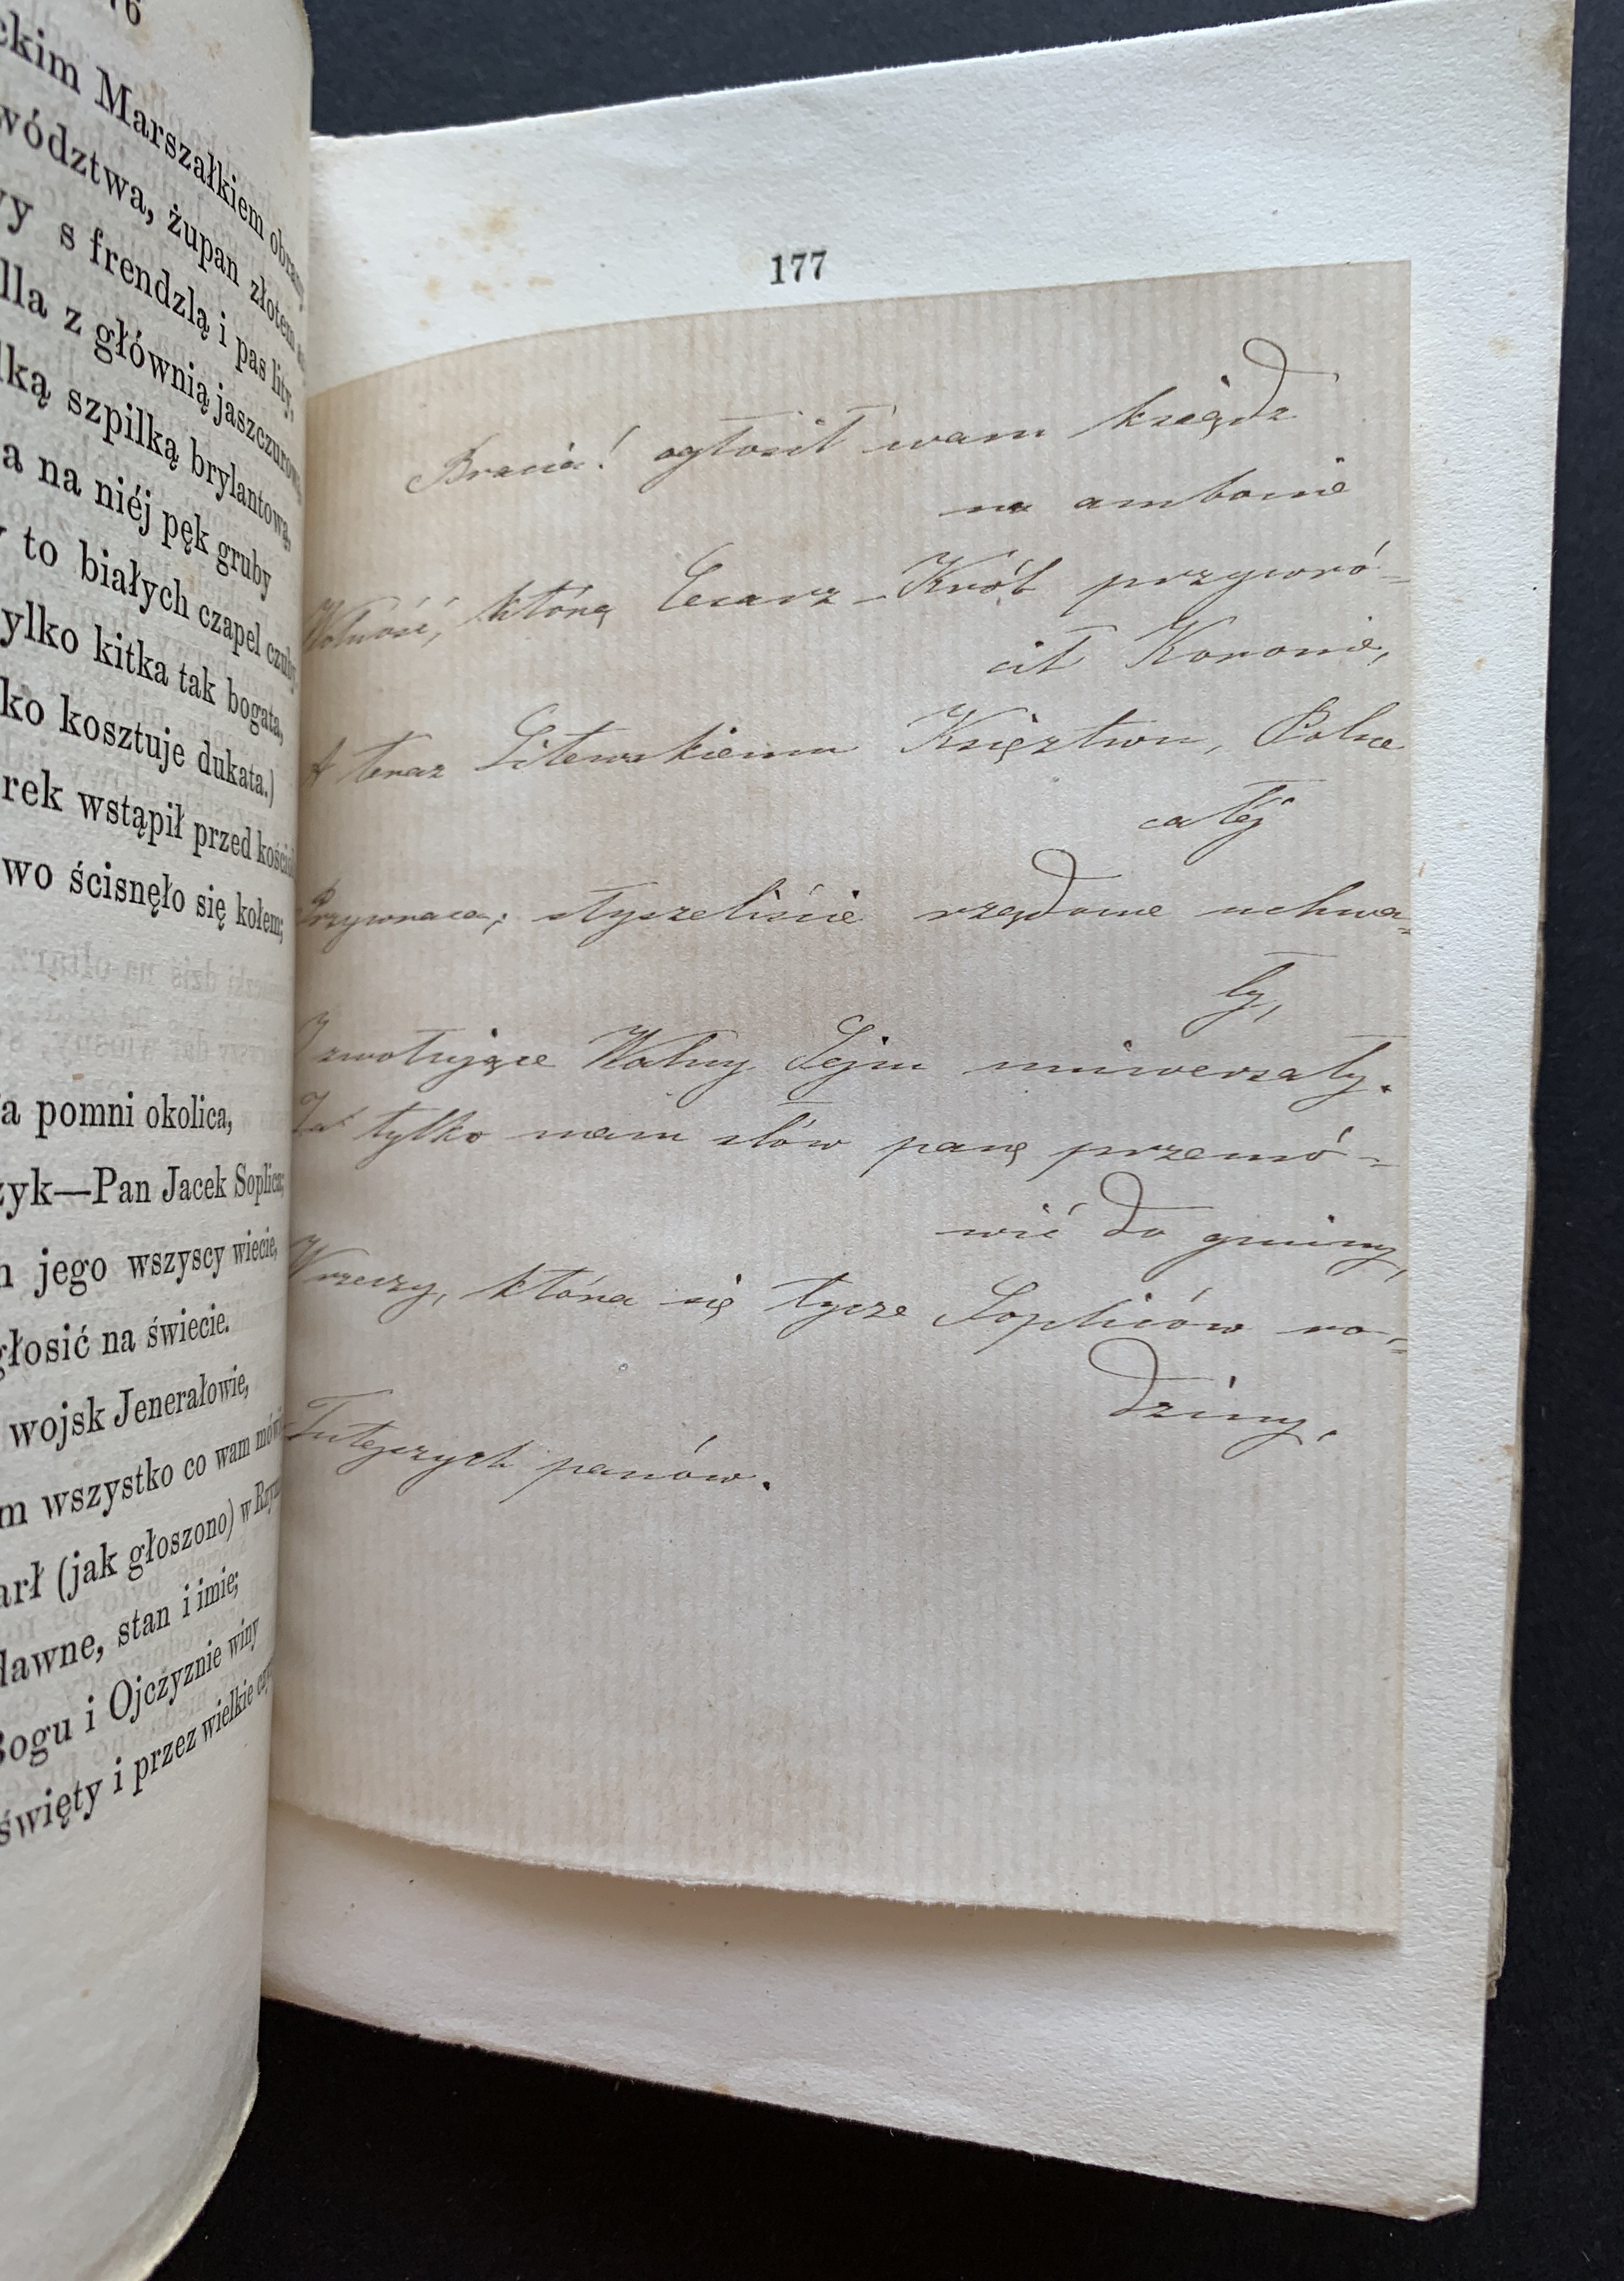 76
ckim Marszałkiem obrany
wództwa, żupan złotem
wy s frendzlą i pas lity,
lla z głównią jaszczurową
lką szpilką brylantową,
a na niéj pęk gruby
y to białych czapel czuby
ylko kitka tak bogata,
ko kosztuje dukata.)
rek wstąpił przed kościołem
wo ścisnęło się kołem;
a pomni okolica,
zyk—Pan Jacek Soplica;
h jego wszyscy wiecie,
głosić na świecie.
wojsk Jenerałowie,
m wszystko co wam mówię
arł (jak głoszono) w Rzym
dawne, stan i imie;
Bogu i Ojczyznie winy
święty i przez wielkie czy
177
Bracia! ogłosił wam ksiądz
na ambonie
Wolność, którą Cesarz-Król przywró=
cił Koronie,
A teraz Litewskiemu Księztwu, Polsce
całéj
Przywraca; słyszeliście rządowe uchwa=
ły,
Zwołujące Walny Sejm uniwersały.
Ja tylko mam słów parę przemó=
wić do gminy,
W rzeczy, która się tycze Sopliców ro=
dziny,
Tutejszych panów.